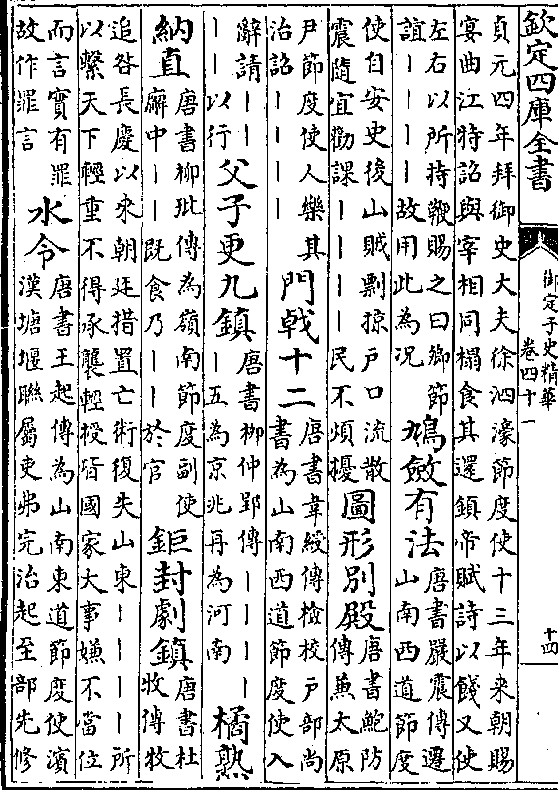 欽定四庫全書
御定子史精華
卷四十一
十四
貞元四年拜御史大夫徐泗濠節度使十三年來朝賜
宴曲江特詔與宰相同榻食其還鎮帝賦詩以餞又使
左右以所持鞭賜之曰卿節
誼丨丨丨丨故用此為况
鳩斂有法
唐書嚴震傳遷
山南西道節度
使自安史後山賊剽掠戶口流散
震隨宜勸課丨丨丨丨民不煩擾
圖形別殿
唐書鮑防
傳兼太原
尹節度使人樂其
治詔丨丨丨丨
門戟十二
唐書韋綬傳檢校戶部尚
書為山南西道節度使入
辭請丨丨
丨丨以行
父子更九鎮
唐書柳仲郢傳丨丨丨
丨丨五為京兆再為河南
橘熟
納直
唐書柳玭傳為嶺南節度副使
廨中丨丨既食乃丨丨於官
鉅封劇鎮
唐書杜
牧傳牧
追咎長慶以來朝廷措置亡術復失山東丨丨丨丨所
以繫天下輕重不得承襲輕授皆國家大事嫌不當位
而言實有罪
故作罪言
水令
唐書王起傳為山南東道節度使濱
漢塘堰聯屬吏弗完治起至部先修